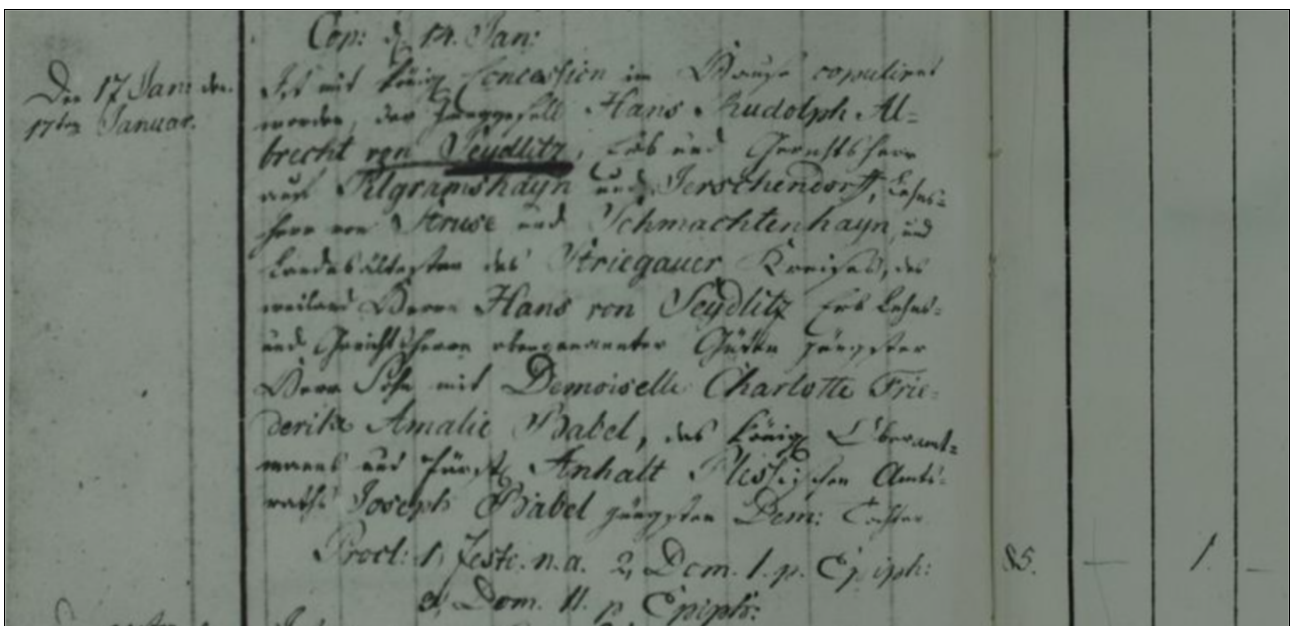 Cop: d. 14. Jan:
Den 17 Jan: den
17ten Januar.
Ist mit Königl Concession im Hause copuliret
worden, der Junggesell Hans Rudolph Al=
brecht von Seydlitz, Erb und Gerichtsherr
auf Pilgramshayn und Jerschendorff, Lehns=
herr von Struse und Schmachtenhayn, und
Landesältester des Striegauer Kreises, des
weiland Herrn Hans von Seydlitz Erb Lehns=
und Gerichtsherrn obengenannter Güter jüngster
Herr Sohn mit Demoiselle Charlotte Frie=
derika Amalie Babel, des Königl Oberamt=
manns und Fürstl Anhalt Plessischen Amts=
raths Joseph Babel jüngsten Dem: Tochter
Procl: 1, Festo. n. a. 2, Dom. 1. p. Epiph:
3, Dom. 11. p Epiph:
85. — 1. —